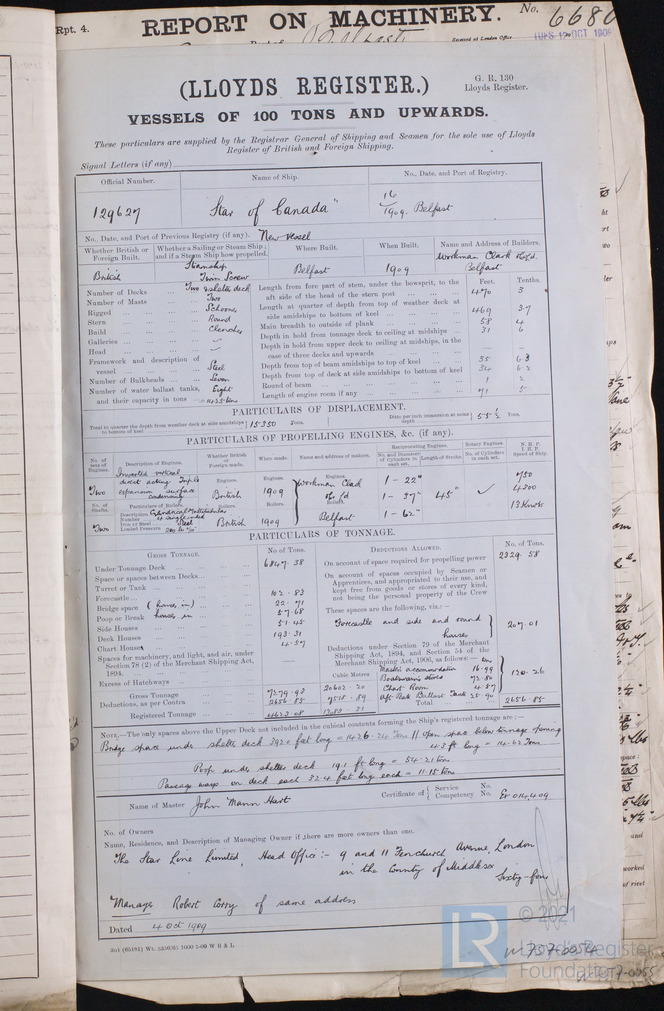 Rpt. 4.
REPORT ON MACHINERY.
No. 6680
Belfast
Received at London Office
TUES. 12 OCT 1909
(LLOYDS REGISTER.)
G. R. 130
Lloyds Register.
VESSELS OF 100 TONS AND UPWARDS.
These particulars are supplied by the Registrar General of Shipping and Seamen for the sole use of Lloyds
Register of British and Foreign Shipping.
Signal Letters (if any)
Official Number. Name of Ship. No., Date, and Port of Registry.
129627 "Star of Canada" 16/1909. Belfast
No., Date, and Port of Previous Registry (if any). New vessel
Whether British or Foreign Built. Whether a Sailing or Steam Ship; and if a Steam Ship how propelled. Where Built. When Built. Name and Address of Builders.
British Steamship Twin Screw Belfast 1909 Workman Clark & Co Ltd. Belfast
Number of Decks Two & shelter deck
Number of Masts Two
Rigged Schooner
Stern Round
Build Clencher
Galleries
Head
Framework and description of vessel Steel
Number of Bulkheads Seven
Number of water ballast tanks, Eight
and their capacity in tons 1425 tons
Feet. Tenths.
Length from fore part of stem, under the bowsprit, to the aft side of the head of the stern post 470 3
Length at quarter of depth from top of weather deck at side amidships to bottom of keel 469 3.7
Main breadth to outside of plank 58 4
Depth in hold from tonnage deck to ceiling at midships 31 6
Depth in hold from upper deck to ceiling at midships, in the case of three decks and upwards
Depth from top of beam amidships to top of keel 35 6.3
Depth from top of deck at side amidships to bottom of keel 34 6.2
Round of beam 1 2
Length of engine room if any 71 5
PARTICULARS OF DISPLACEMENT.
Total to quarter the depth from weather deck at side amidships to bottom of keel 15350 Tons. Ditto per inch immersion at same depth 55½ Tons.
PARTICULARS OF PROPELLING ENGINES, &c. (if any).
No. of sets of Engines. Description of Engines. Whether British or Foreign made. When made. Name and address of makers. Reciprocating Engines. Rotary Engines. N. H. P. I. H. P. Speed of Ship.
No. and Diameter of Cylinders in each set. Length of Stroke. No. of Cylinders in each set.
Two Inverted vertical direct acting triple expansion surface condensing
Engines. British
Engines. 1909
Engines. Workman Clark & Co Ld Belfast
1 - 22"
1 - 37" 45"
1 - 62"
750
4200
13 Knots
No. of Shafts. Two
Particulars of Boilers.
Description Cylindrical Multitubular
Number 4 single ended
Iron or Steel Steel
Loaded Pressure 200 lbs
Boilers. British
Boilers. 1909
Boilers.
PARTICULARS OF TONNAGE.
GROSS TONNAGE. No. of Tons. DEDUCTIONS ALLOWED. No. of Tons.
Under Tonnage Deck 6847.38
Space or spaces between Decks
Turret or Trunk
Forecastle 102.83
Bridge space (houses in) 22.71
Poop or Break houses in 57.68
Side Houses 51.45
Deck Houses 193.31
Chart House 4.57
Spaces for machinery, and light, and air, under Section 78 (2) of the Merchant Shipping Act, 1894.
Excess of Hatchways
Cubic Metres
Gross Tonnage 7279.93 20602.20
Deductions, as per Contra 2656.85 7518.89
Registered Tonnage 4623.08 13083.31
On account of space required for propelling power 2329.58
On account of spaces occupied by Seamen or Apprentices, and appropriated to their use, and kept free from goods or stores of every kind, not being the personal property of the Crew
These spaces are the following, viz.:-
Forecastle and side and round houses 207.01
Deductions under Section 79 of the Merchant Shipping Act, 1894, and Section 54 of the Merchant Shipping Act, 1906, as follows:- tons
Master's accommodation 16.99
Boatswain's stores 72.80
Chart Room 4.57
Aft Peak Ballast Tank 25.90
120.26
Total 2656.85
NOTE.—The only spaces above the Upper Deck not included in the cubical contents forming the Ship's registered tonnage are:—
Bridge space under shelter deck 392.0 feet long = 1426.24 Tons // Open space below tonnage opening
4.3 ft long = 14.62 Tons
Poop under shelter deck 19.1 ft long = 54.21 tons
Passage ways on deck each 32.4 feet long each = 11.15 tons
Name of Master John Mann Hart
Certificate of { Service No.
Competency No. Er 014409
No. of Owners
Name, Residence, and Description of Managing Owner if there are more owners than one.
The Star Line Limited, Head Office:- 9 and 11 Fenchurch Avenue, London
in the County of Middlesex
Sixty-four
Manager Robert Corry of same address
Dated 4 Oct 1909
LR
© 2021
Lloyd's Register
Foundation
W757-0054